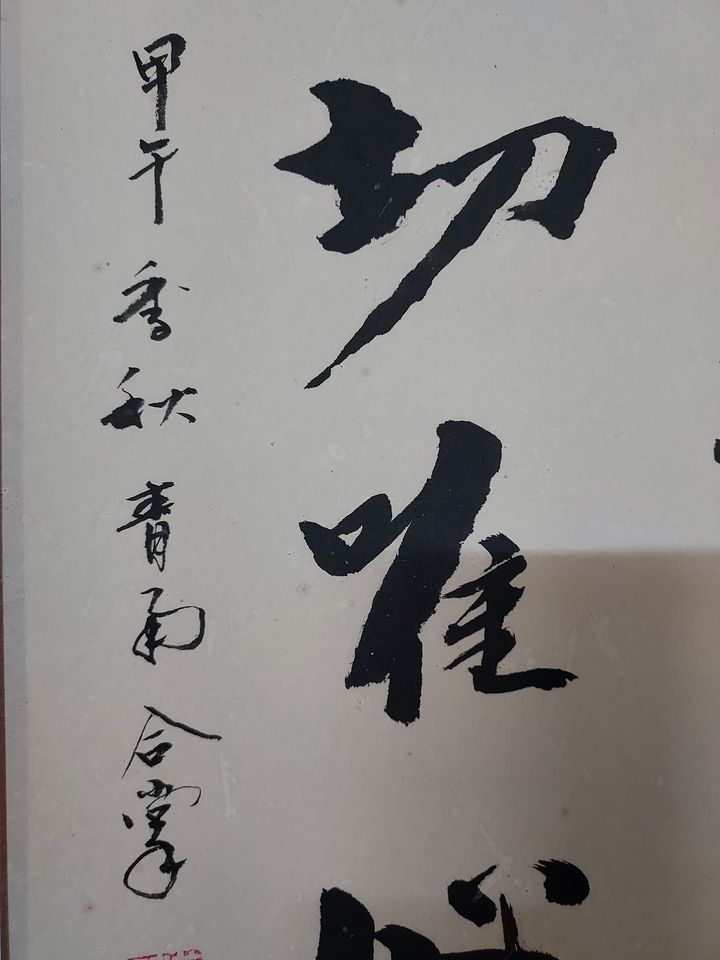 切唯
甲午季秋青雨合掌